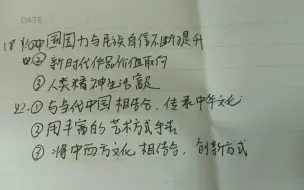 DATE
18. 中国国力与民族自信不断提升
② 新时代作品价值取向
③ 人类精神生活富足
22. ① 与当代中国相结合，传承中华文化
② 用丰富的艺术方式
③ 将中西方文化相结合，创新方式